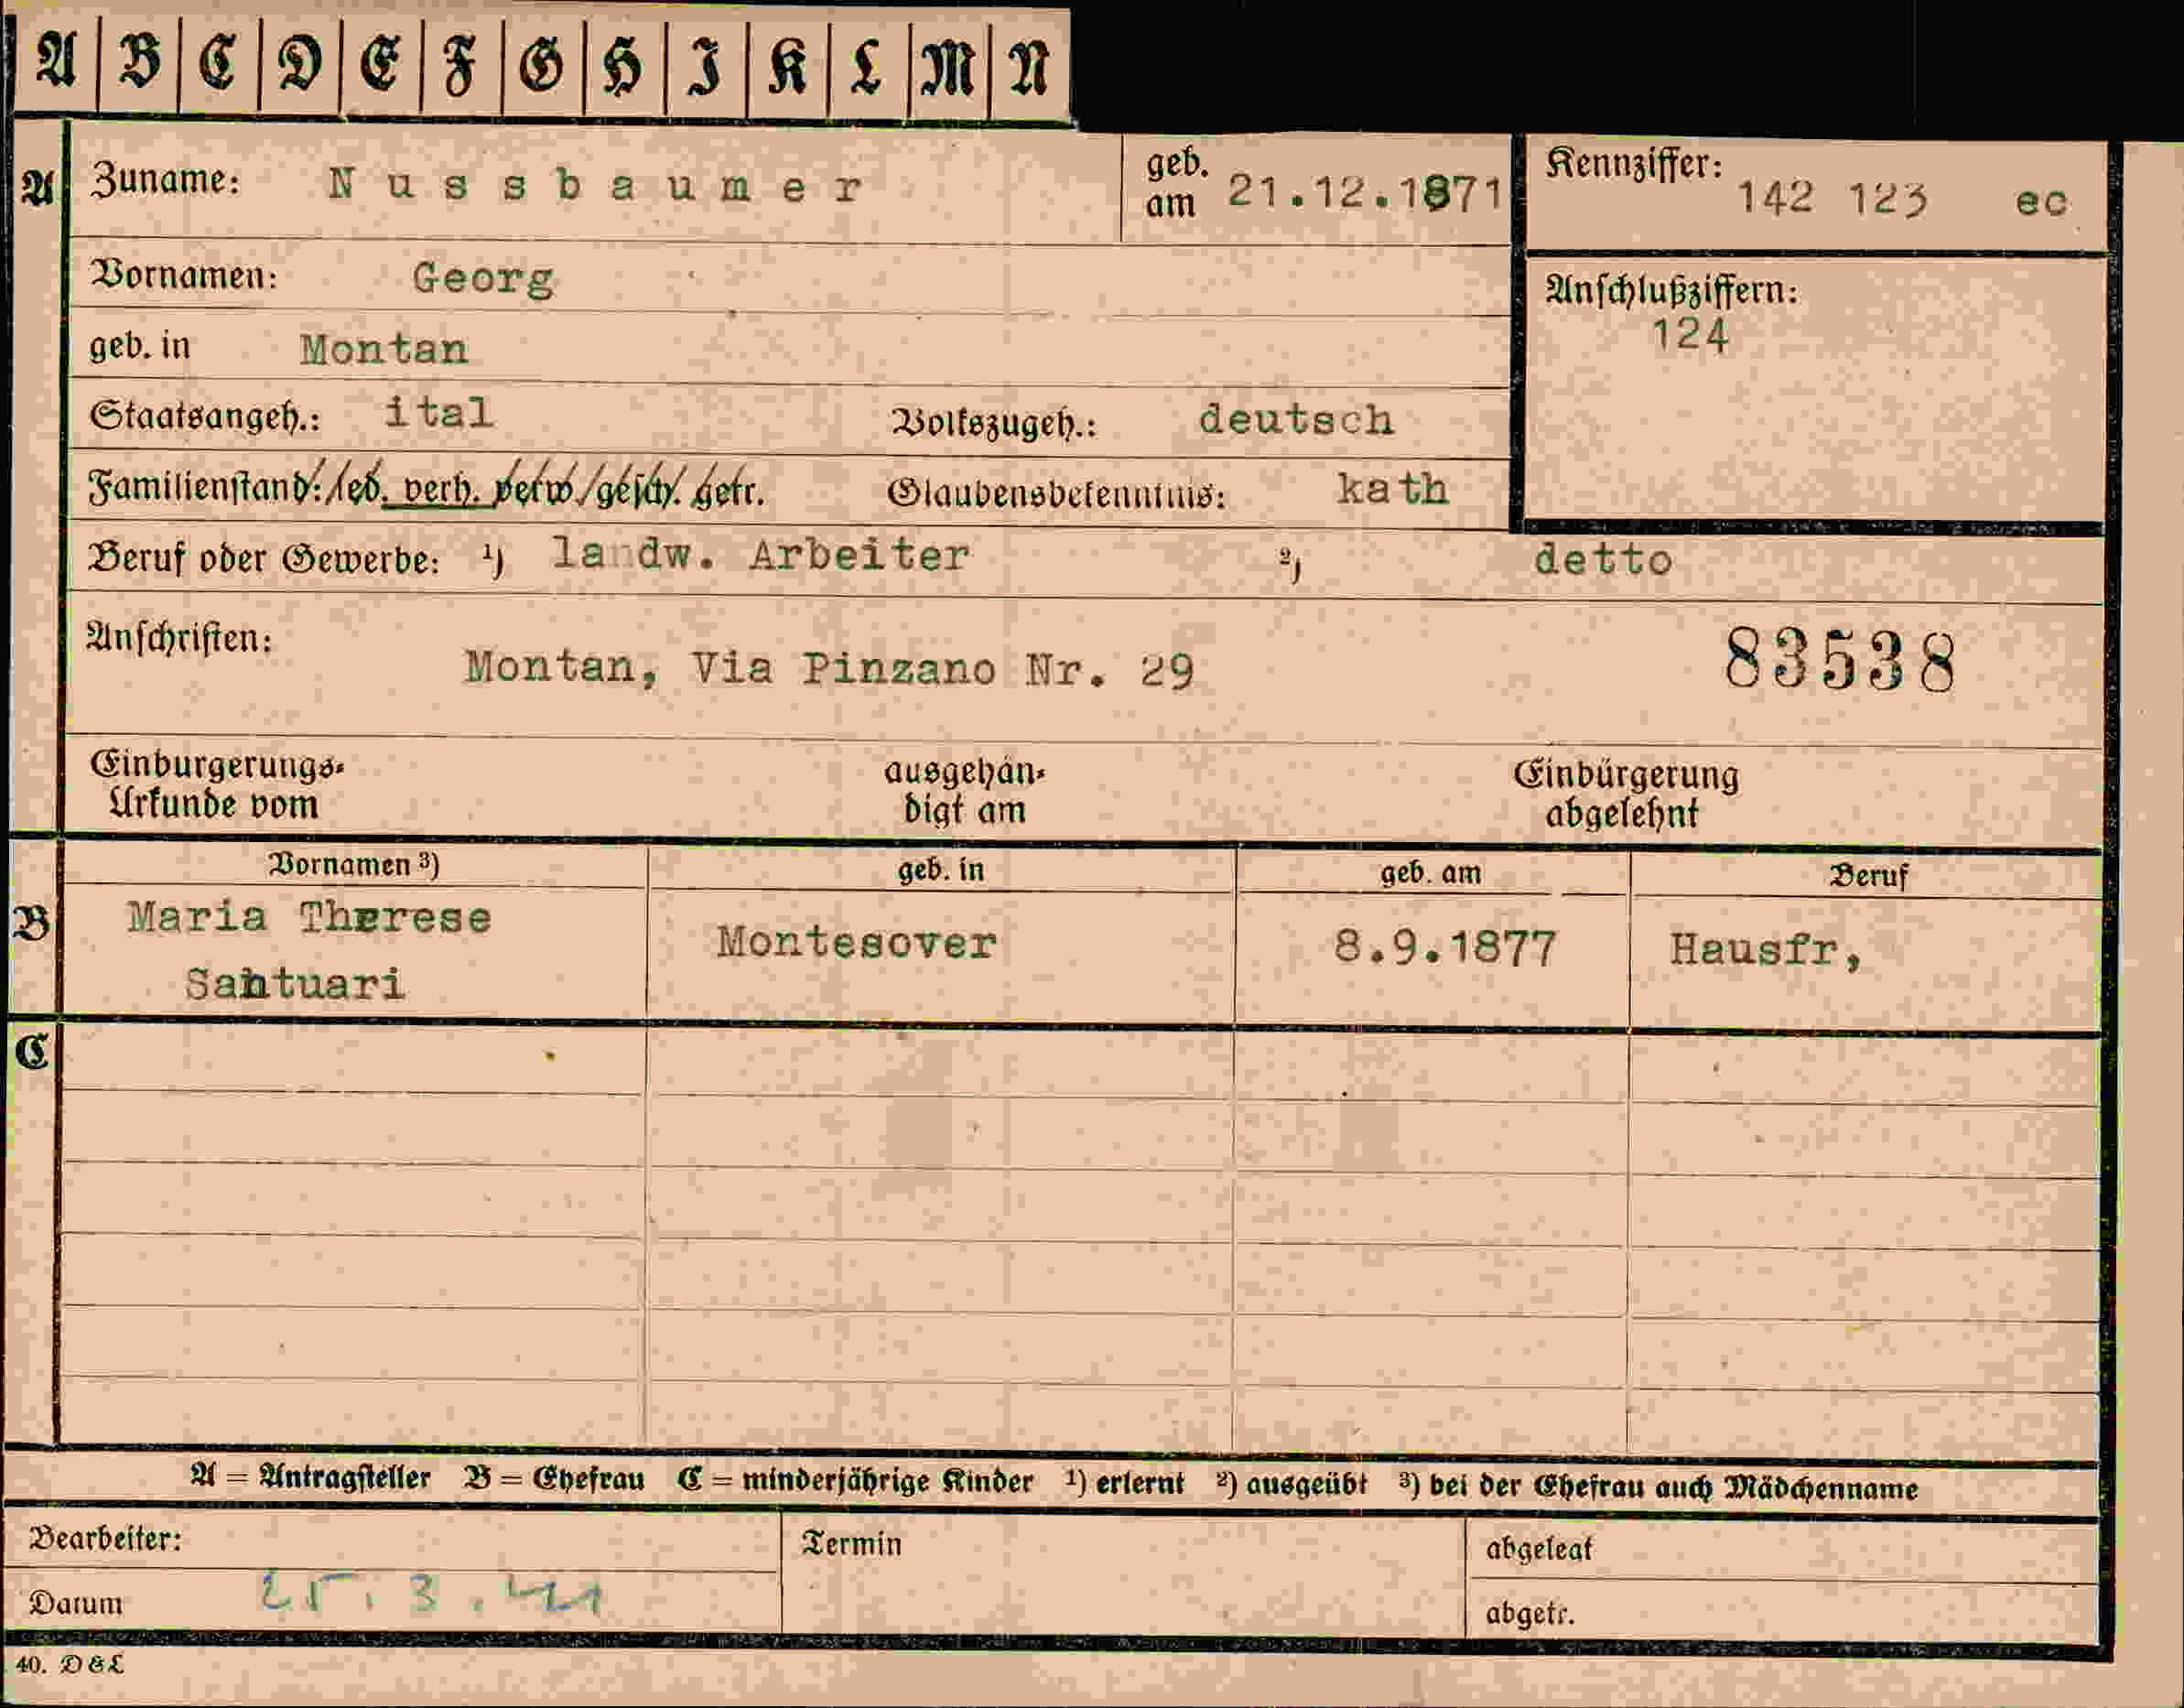 A B C D E F G H I K L M N
A Zuname: Nussbaumer geb. am 21.12.1871 Kennziffer: 142 123 ec
Vornamen: Georg
Anschlußziffern: 124
geb. in Montan
Staatsangeh.: ital Volkszugeh.: deutsch
Familienstand: led. verh. verw. gesch. getr. Glaubensbekenntnis: kath
Beruf oder Gewerbe: ¹) landw. Arbeiter ²) detto
Anschriften: Montan, Via Pinzano Nr. 29 83538
Einbürgerungs-
Urkunde vom
ausgehän-
digt am
Einbürgerung
abgelehnt
Vornamen ³) geb. in geb. am Beruf
B Maria Therese Montesover 8.9.1877 Hausfr,
Santuari
C
A = Antragsteller B = Ehefrau C = minderjährige Kinder ¹) erlernt ²) ausgeübt ³) bei der Ehefrau auch Mädchenname
Bearbeiter: Termin abgelegt
Datum 25.3.41 abgetr.
40. D&L